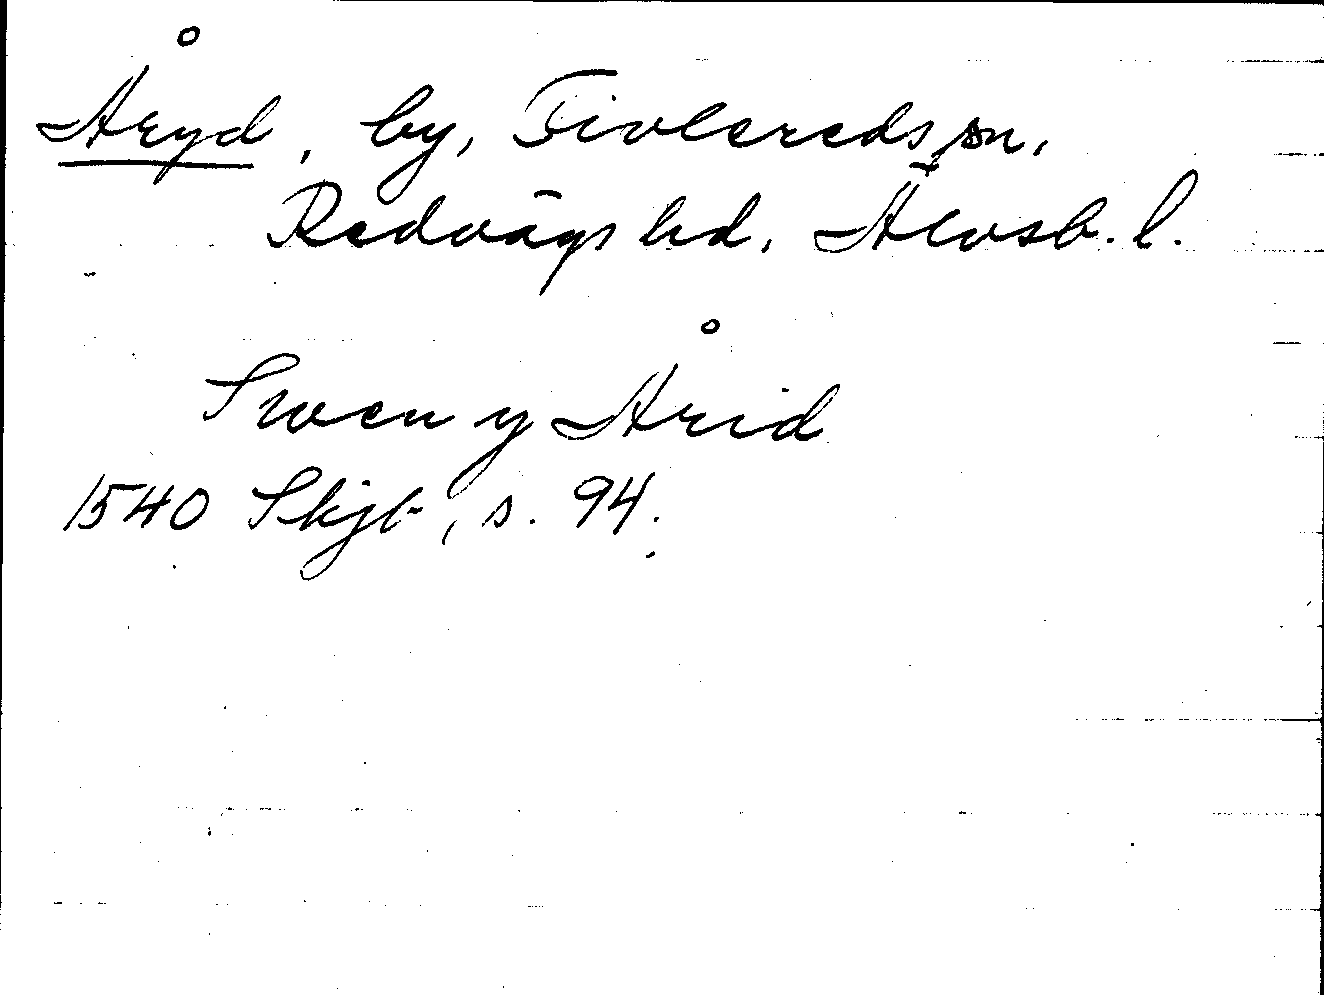 Åryd, by, Tivlereds sn,
Redvägs hd, Älvsb. l.
Swen y Årid
1540 Skjb, s. 94.